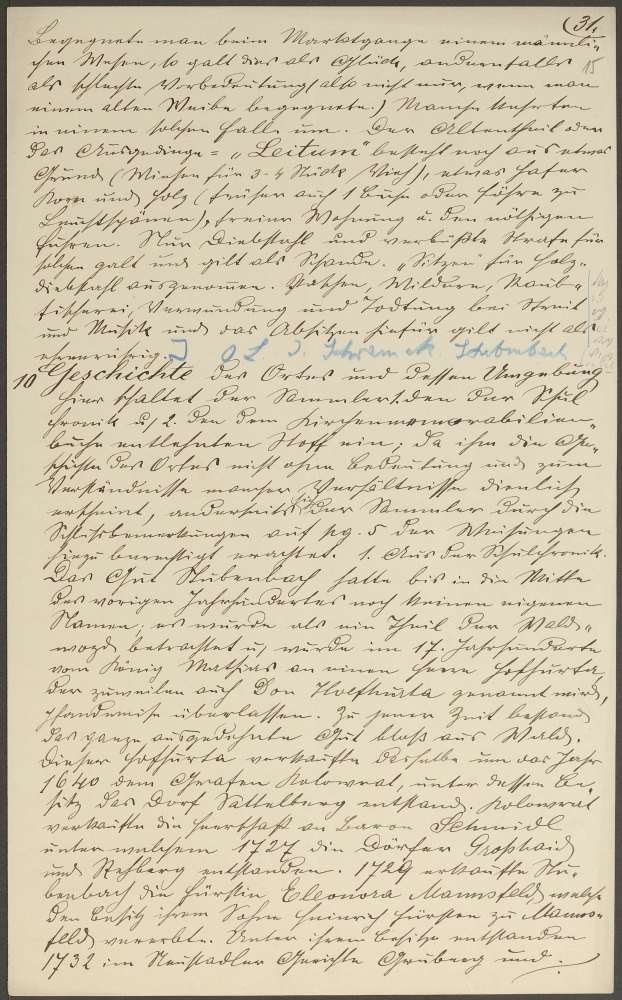 31.
15
Begegnete man beim Marktgange einem männli-
chen Wesen, so galt dies als Glück, andernfalls
als schlechte Vorbedeutung (also nicht nur, wenn man
einem alten Weibe begegnete.) Manche kehrten
in einem solchen Falle um. Der Altentheil oder
das Ausgedinge = „Leitum" besteht noch aus etwas
Grund (Wiesen für 3-4 Stück Vieh), etwas Hafer
Korn und Holz (früher auch 1 Buche oder Föhre zu
Leuchtspänen), freier Wohnung u. den nöthigen
Fuhren. Nur Diebstahl und verbüßte Strafe für
solchen galt und gilt als Schande. „Sitzen" für Holz-
diebstahl ausgenommen. Paschen, Wildern, Raub-
fischerei, Verwundung und Todtung bei Streit
und Musik und das Absitzen hiefür gilt nicht als
ehrenrührig. J. Schramek Stubenbach
10 Geschichte des Ortes und dessen Umgebung
Hier schaltet der Sammler 1. den der Schul
chronik u. 2. den dem Kirchenmemorabilien-
buche entlehnten Stoff ein; da ihm die Ge-
schichte des Ortes nicht ohne Bedeutung und zum
Verständnisse mancher Verhältnisse dienlich
erscheint, anderseits sich der Sammler durch die
Schlußbemerkungen auf pg. 5 der Weisungen
hiezu berechtigt erachtet. 1. Aus der Schulchronik.
Das Gut Stubenbach hatte bis in die Mitte
des vorigen Jahrhundertes noch keinen eigenen
Namen; es wurde als ein Theil der Wald-
wozd betrachtet u, wurde im 17. Jahrhunderte
vom König Mathias an einen Herrn Hofhurta,
der zuweilen auch Don Hoefhurta genannt wird,
pfandweise überlassen. Zu jener Zeit bestand
das ganze ausgedehnte Gut bloß aus Wald.
Dieser Hofhurta verkaufte dasselbe um das Jahr
1640 dem Grafen Kolowrat, unter dessen Be-
sitz das Dorf Sattelberg entstand. Kolowrat
verkaufte die Herrschaft an Baron Schmidl
unter welchem 1727 die Dörfer Großhaid
und Rehberg entstanden. 1729 erkaufte Stu-
benbach die Fürstin Eleonora Mannsfeld, welche
den Besitz ihrem Sohne Heinrich Fürsten zu Manns-
feld vererbte. Unter ihrem Besitze entstanden
1732 im Neustadler Gerichte Gruberg und